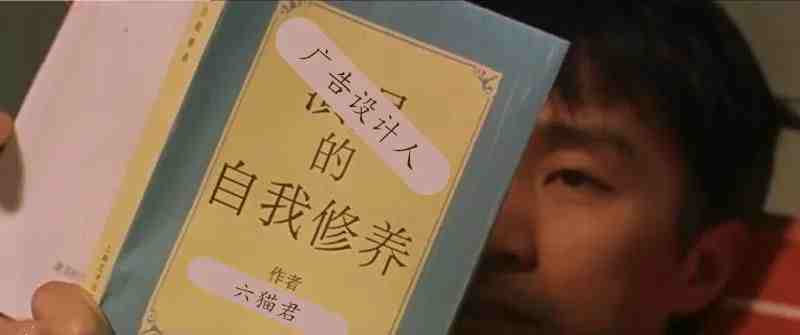 广告设计人
的
自我修养
作者
六猫君